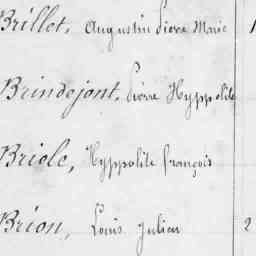 Brillet, Augustin Pierre Marie 1
Brindejont, Pierre Hyppolite
Briole, Hyppolite françois
Brion, Louis Julien 2